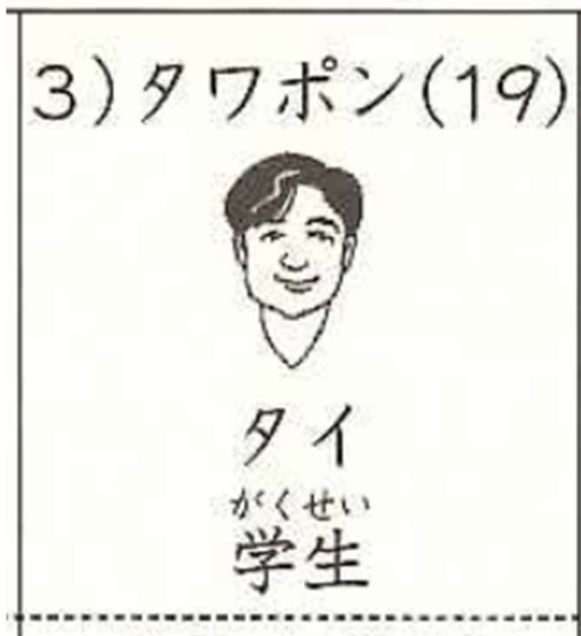 3)タワポン(19)
タイ
がくせい
学生